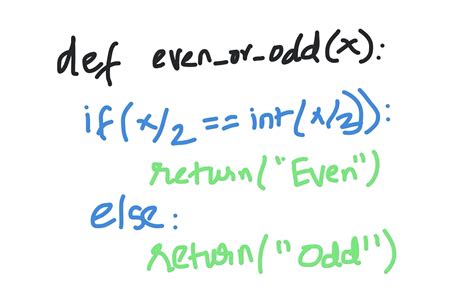 def even_or_odd(x):
if(x/2 == int(x/2)):
return("Even")
else:
return("Odd")